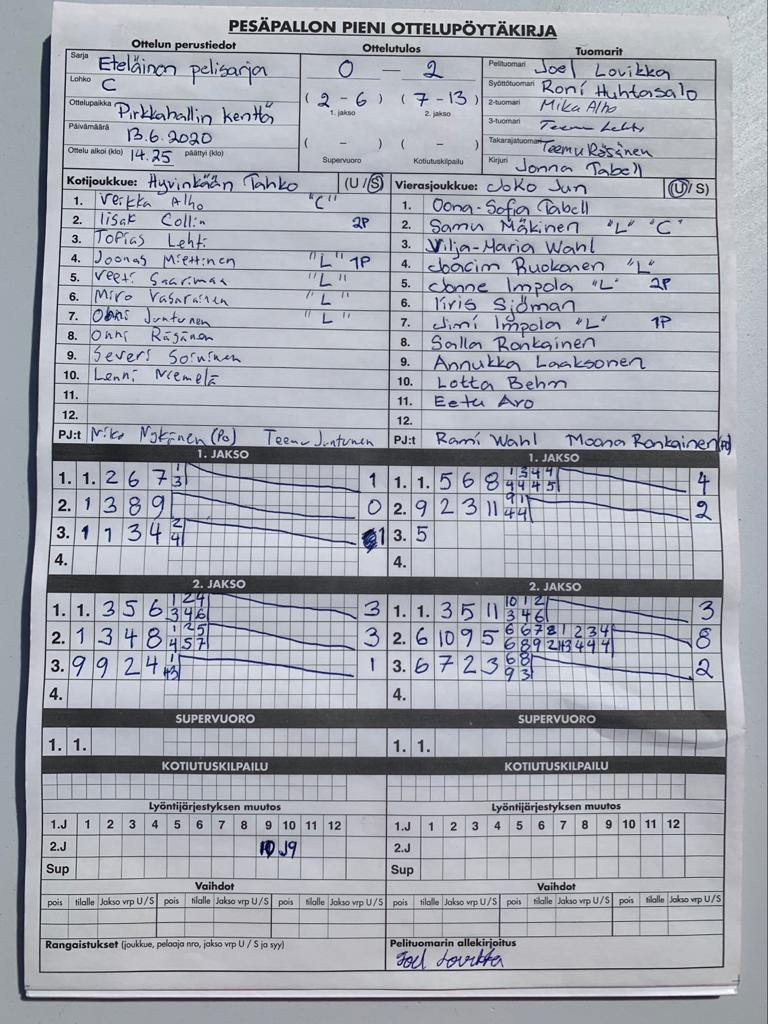 PESÄPALLON PIENI OTTELUPÖYTÄKIRJA
Ottelun perustiedot
Sarja Eteläinen pelisarja
Lohko C
Ottelupaikka Pirkkahallin kenttä
Päivämäärä 13.6.2020
Ottelu alkoi (klo) 14.25 päättyi (klo)
Ottelutulos
0 – 2
( 2 - 6 ) ( 7 - 13 )
1. jakso 2. jakso
( – ) ( – )
Supervuoro Kotiutuskilpailu
Tuomarit
Pelituomari Joel Lovikka
Syöttötuomari Roni Huhtasalo
2-tuomari Mika Alho
3-tuomari Teemu Lehti
Takarajatuomari Teemu Räsänen
Kirjuri Jonna Tabell
Kotijoukkue: Hyvinkään Tahko (U/S)
1. Veikka Alho "C"
2. Iisak Collin 2P
3. Topias Lehti
4. Joonas Miettinen "L" 1P
5. Veeti Saarimaa "L"
6. Miro Vasarainen "L"
7. Juntunen "L"
8. Onni Räsänen
9. Severi Soininen
10. Lenni Niemelä
11.
12.
PJ:t Niko Nykänen (Po) Teemu Juntunen
Vierasjoukkue: JoKo Jun (U/S)
1. Oona-Sofia Tabell
2. Samu Mäkinen "L" "C"
3. Vilja-Maria Wahl
4. Joacim Ruokonen "L"
5. Jonne Impola "L" 2P
6. Iiris Sjöman
7. Jimi Impola "L" 1P
8. Salla Ronkainen
9. Annukka Laaksonen
10. Lotta Behm
11. Eetu Aro
12.
PJ:t Rami Wahl Moona Ronkainen (Po)
1. JAKSO
1. 1. 2 6 7 1 1
3
2. 1 3 8 9 0
3. 1 1 3 4 2 1
4
4.
1. JAKSO
1. 1. 5 6 8 1 3 4 4 4
4 4 4 5
2. 9 2 3 11 9 1 2
4 4
3. 5
4.
2. JAKSO
1. 1. 3 5 6 1 2 4 3
3 4 6
2. 1 3 4 8 1 2 5 3
4 5 7
3. 9 9 2 4 1 1
+3
4.
2. JAKSO
1. 1. 3 5 11 10 1 2 3
3 4 6
2. 6 10 9 5 6 6 7 8 1 2 3 4 8
6 8 9 2 +3 4 4 4
3. 6 7 2 3 6 8 2
9 3
4.
SUPERVUORO
1. 1.
SUPERVUORO
1. 1.
KOTIUTUSKILPAILU
KOTIUTUSKILPAILU
Lyöntijärjestyksen muutos
1.J 1 2 3 4 5 6 7 8 9 10 11 12
2.J 10 J9
Sup
Lyöntijärjestyksen muutos
1.J 1 2 3 4 5 6 7 8 9 10 11 12
2.J
Sup
Vaihdot
pois tilalle Jakso vrp U/S pois tilalle Jakso vrp U/S pois tilalle Jakso vrp U/S
Vaihdot
pois tilalle Jakso vrp U/S pois tilalle Jakso vrp U/S pois tilalle Jakso vrp U/S
Rangaistukset (joukkue, pelaaja nro, jakso vrp U / S ja syy)
Pelituomarin allekirjoitus
Joel Lovikka